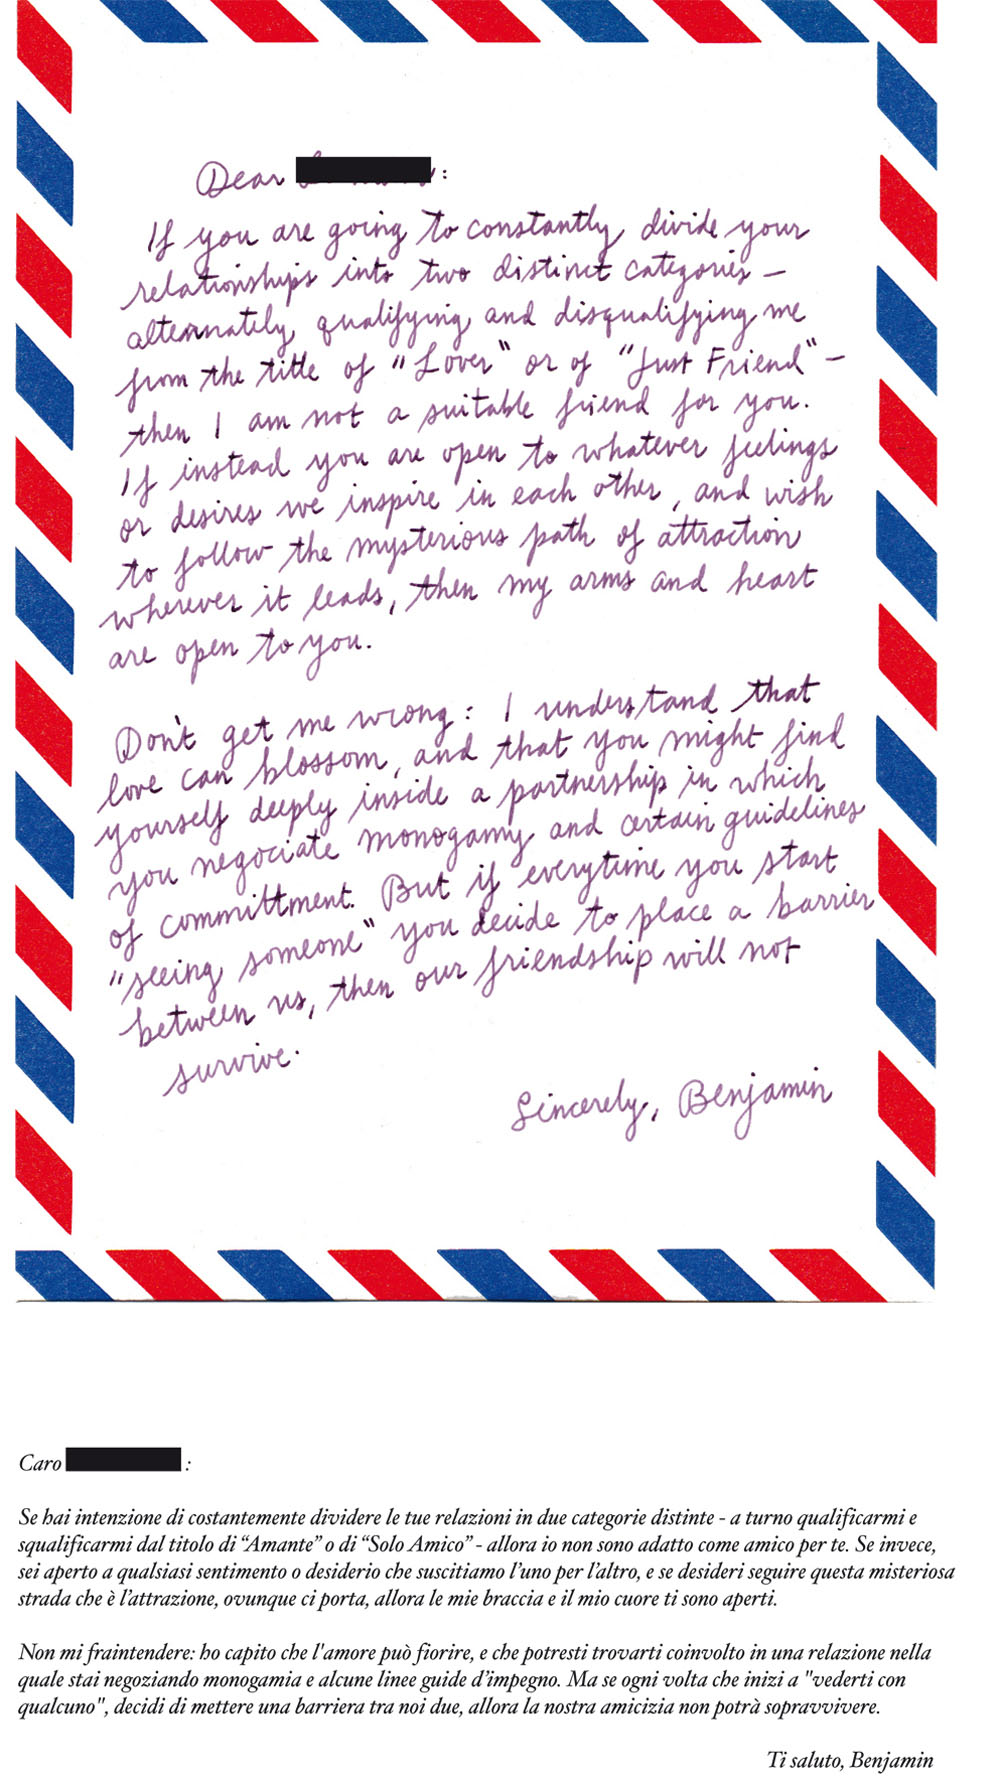 Dear :
If you are going to constantly divide your
relationships into two distinct categories —
alternately qualifying and disqualifying me
from the title of "Lover" or of "Just Friend" —
then I am not a suitable friend for you.
If instead you are open to whatever feelings
or desires we inspire in each other, and wish
to follow the mysterious path of attraction
wherever it leads, then my arms and heart
are open to you.
Don't get me wrong: I understand that
love can blossom, and that you might find
yourself deeply inside a partnership in which
you negociate monogamy and certain guidelines
of committment. But if everytime you start
"seeing someone" you decide to place a barrier
between us, then our friendship will not
survive.
Sincerely, Benjamin
Caro :
Se hai intenzione di costantemente dividere le tue relazioni in due categorie distinte - a turno qualificarmi e
squalificarmi dal titolo di “Amante” o di “Solo Amico” - allora io non sono adatto come amico per te. Se invece,
sei aperto a qualsiasi sentimento o desiderio che suscitiamo l’uno per l’altro, e se desideri seguire questa misteriosa
strada che è l’attrazione, ovunque ci porta, allora le mie braccia e il mio cuore ti sono aperti.
Non mi fraintendere: ho capito che l'amore può fiorire, e che potresti trovarti coinvolto in una relazione nella
quale stai negoziando monogamia e alcune linee guide d’impegno. Ma se ogni volta che inizi a "vederti con
qualcuno", decidi di mettere una barriera tra noi due, allora la nostra amicizia non potrà sopravvivere.
Ti saluto, Benjamin